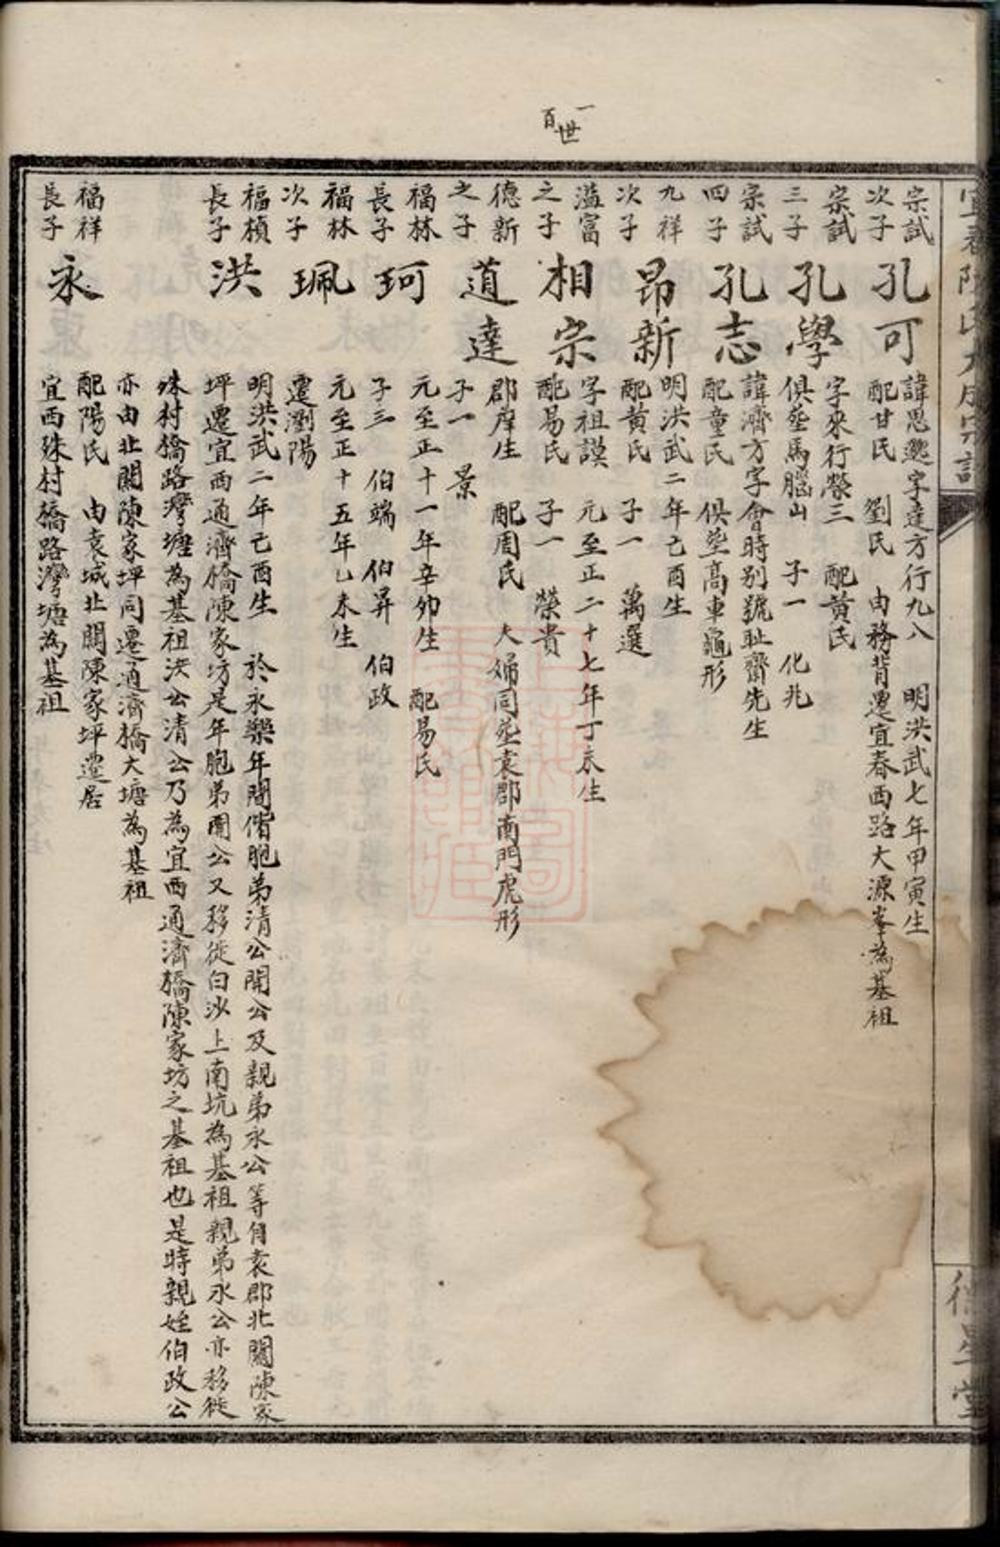 一百世
宗試次子
孔可
諱思邈字達方行九八 明洪武七年甲寅生
配甘氏 劉氏 由務背遷宜春西路大源峯為基祖
宗試三子
孔學
字來行榮三 配黃氏
俱塟馬腦山 子一 化兆
宗試四子
孔志
諱濟方字會時别號耻齋先生
配童氏 俱塟高車龜形
九祥次子
昂新
明洪武二年己酉生
配黃氏 子一 萬選
溢富之子
相宗
字祖謨 元至正二十七年丁未生
配易氏 子一 榮貴
德新之子
道達
郡庠生 配周氏 夫婦同塟袁郡南門虎形
子一 景
福林長子
珂
元至正十一年辛卯生 配易氏
子三 伯端 伯昇 伯政
福林次子
珮
元至正十五年乙未生
遷瀏陽
福楨長子
洪
明洪武二年己酉生 於永樂年間偕胞弟清公開公及親弟永公等自袁郡北關陳家
坪遷宜西通濟橋陳家坊是年胞弟開公又移徙白沙上南坑為基祖親弟永公亦移徙
殊村橋路灣塘為基祖洪公清公乃為宜西通濟橋陳家坊之基祖也是時親姪伯政公
亦由北關陳家坪同遷通濟橋大塘為基祖
福祥長子
永
配陽氏 由袁城北關陳家坪遷居
宜西殊村橋路灣塘為基祖